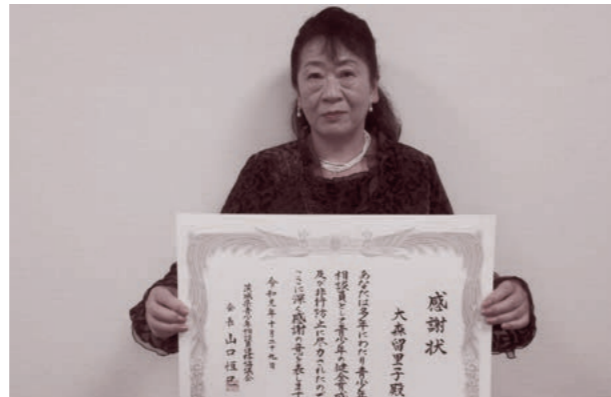 感謝状
大森留里子殿
あなたは多年にわたり青少年
相談員として青少年の健全育成
及び非行防止に尽力されたので
ここに深く感謝の意を表します
令和元年十月二十九日
茨城県青少年相談員連絡協議会
会長 山口恒